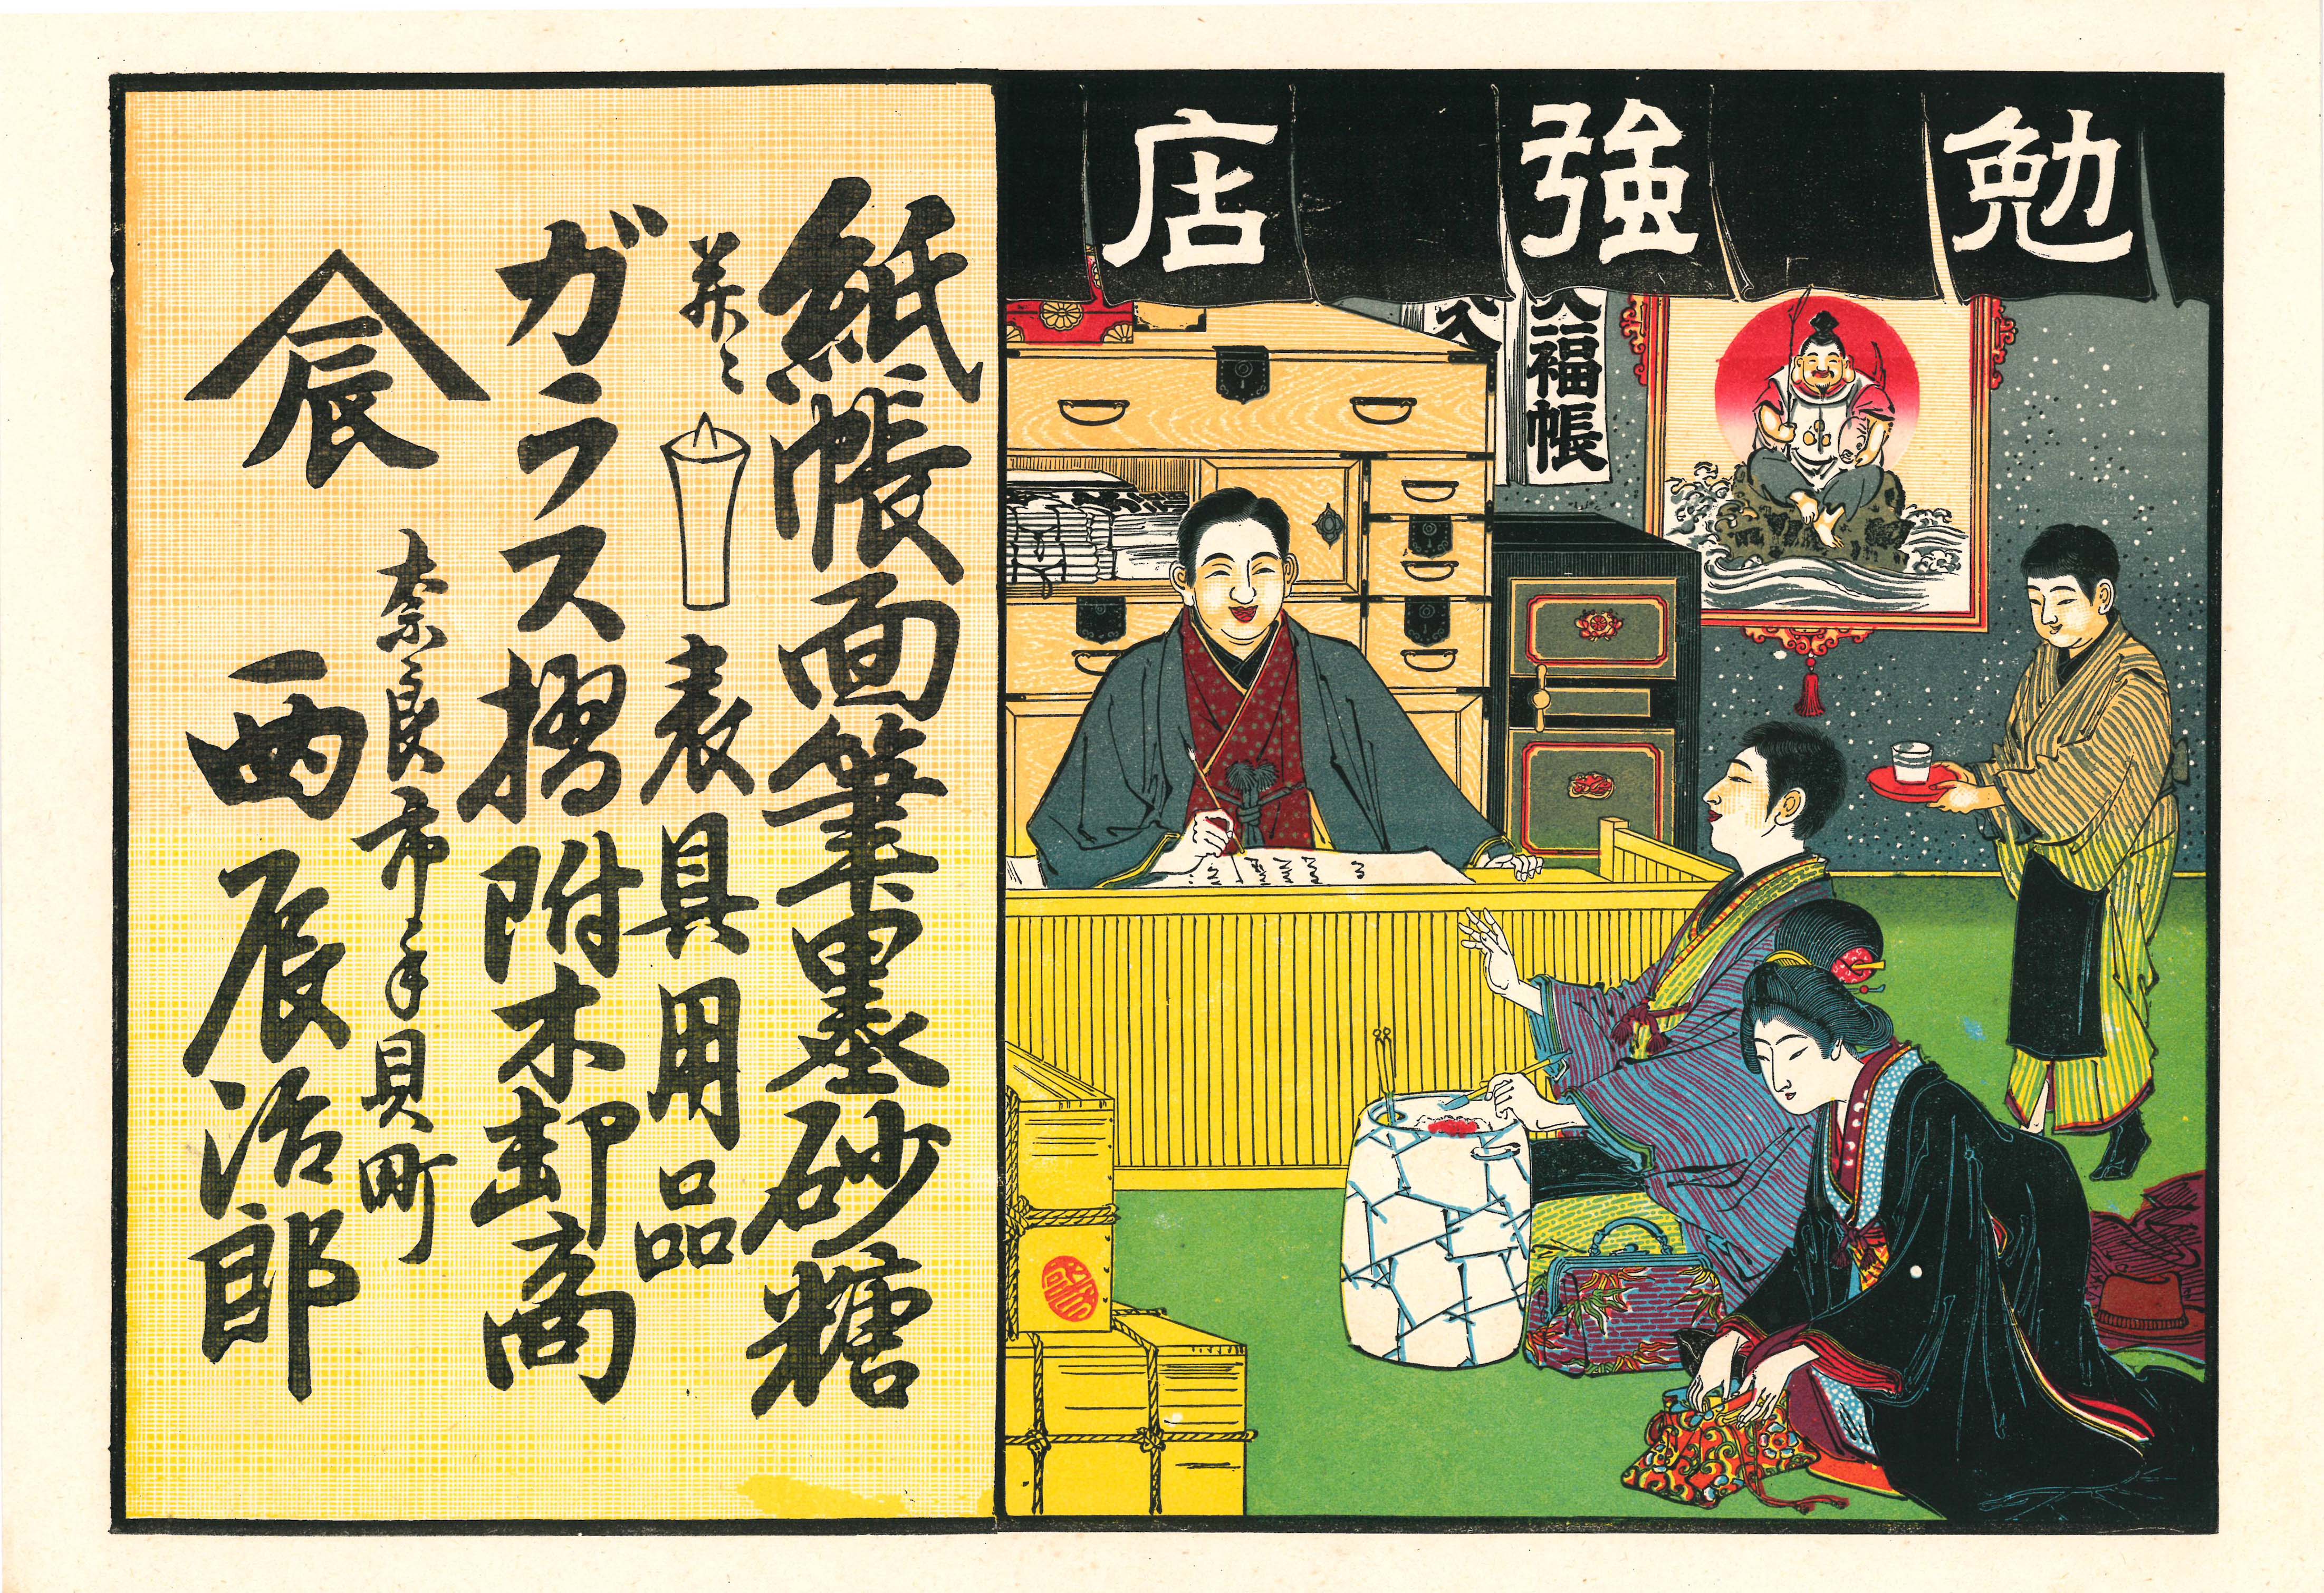 勉強店
大福帳
入
紙帳面筆墨砂糖
并ニ
表具用品
ガラス摺附木卸商
辰
奈良市手貝町
西辰治郎